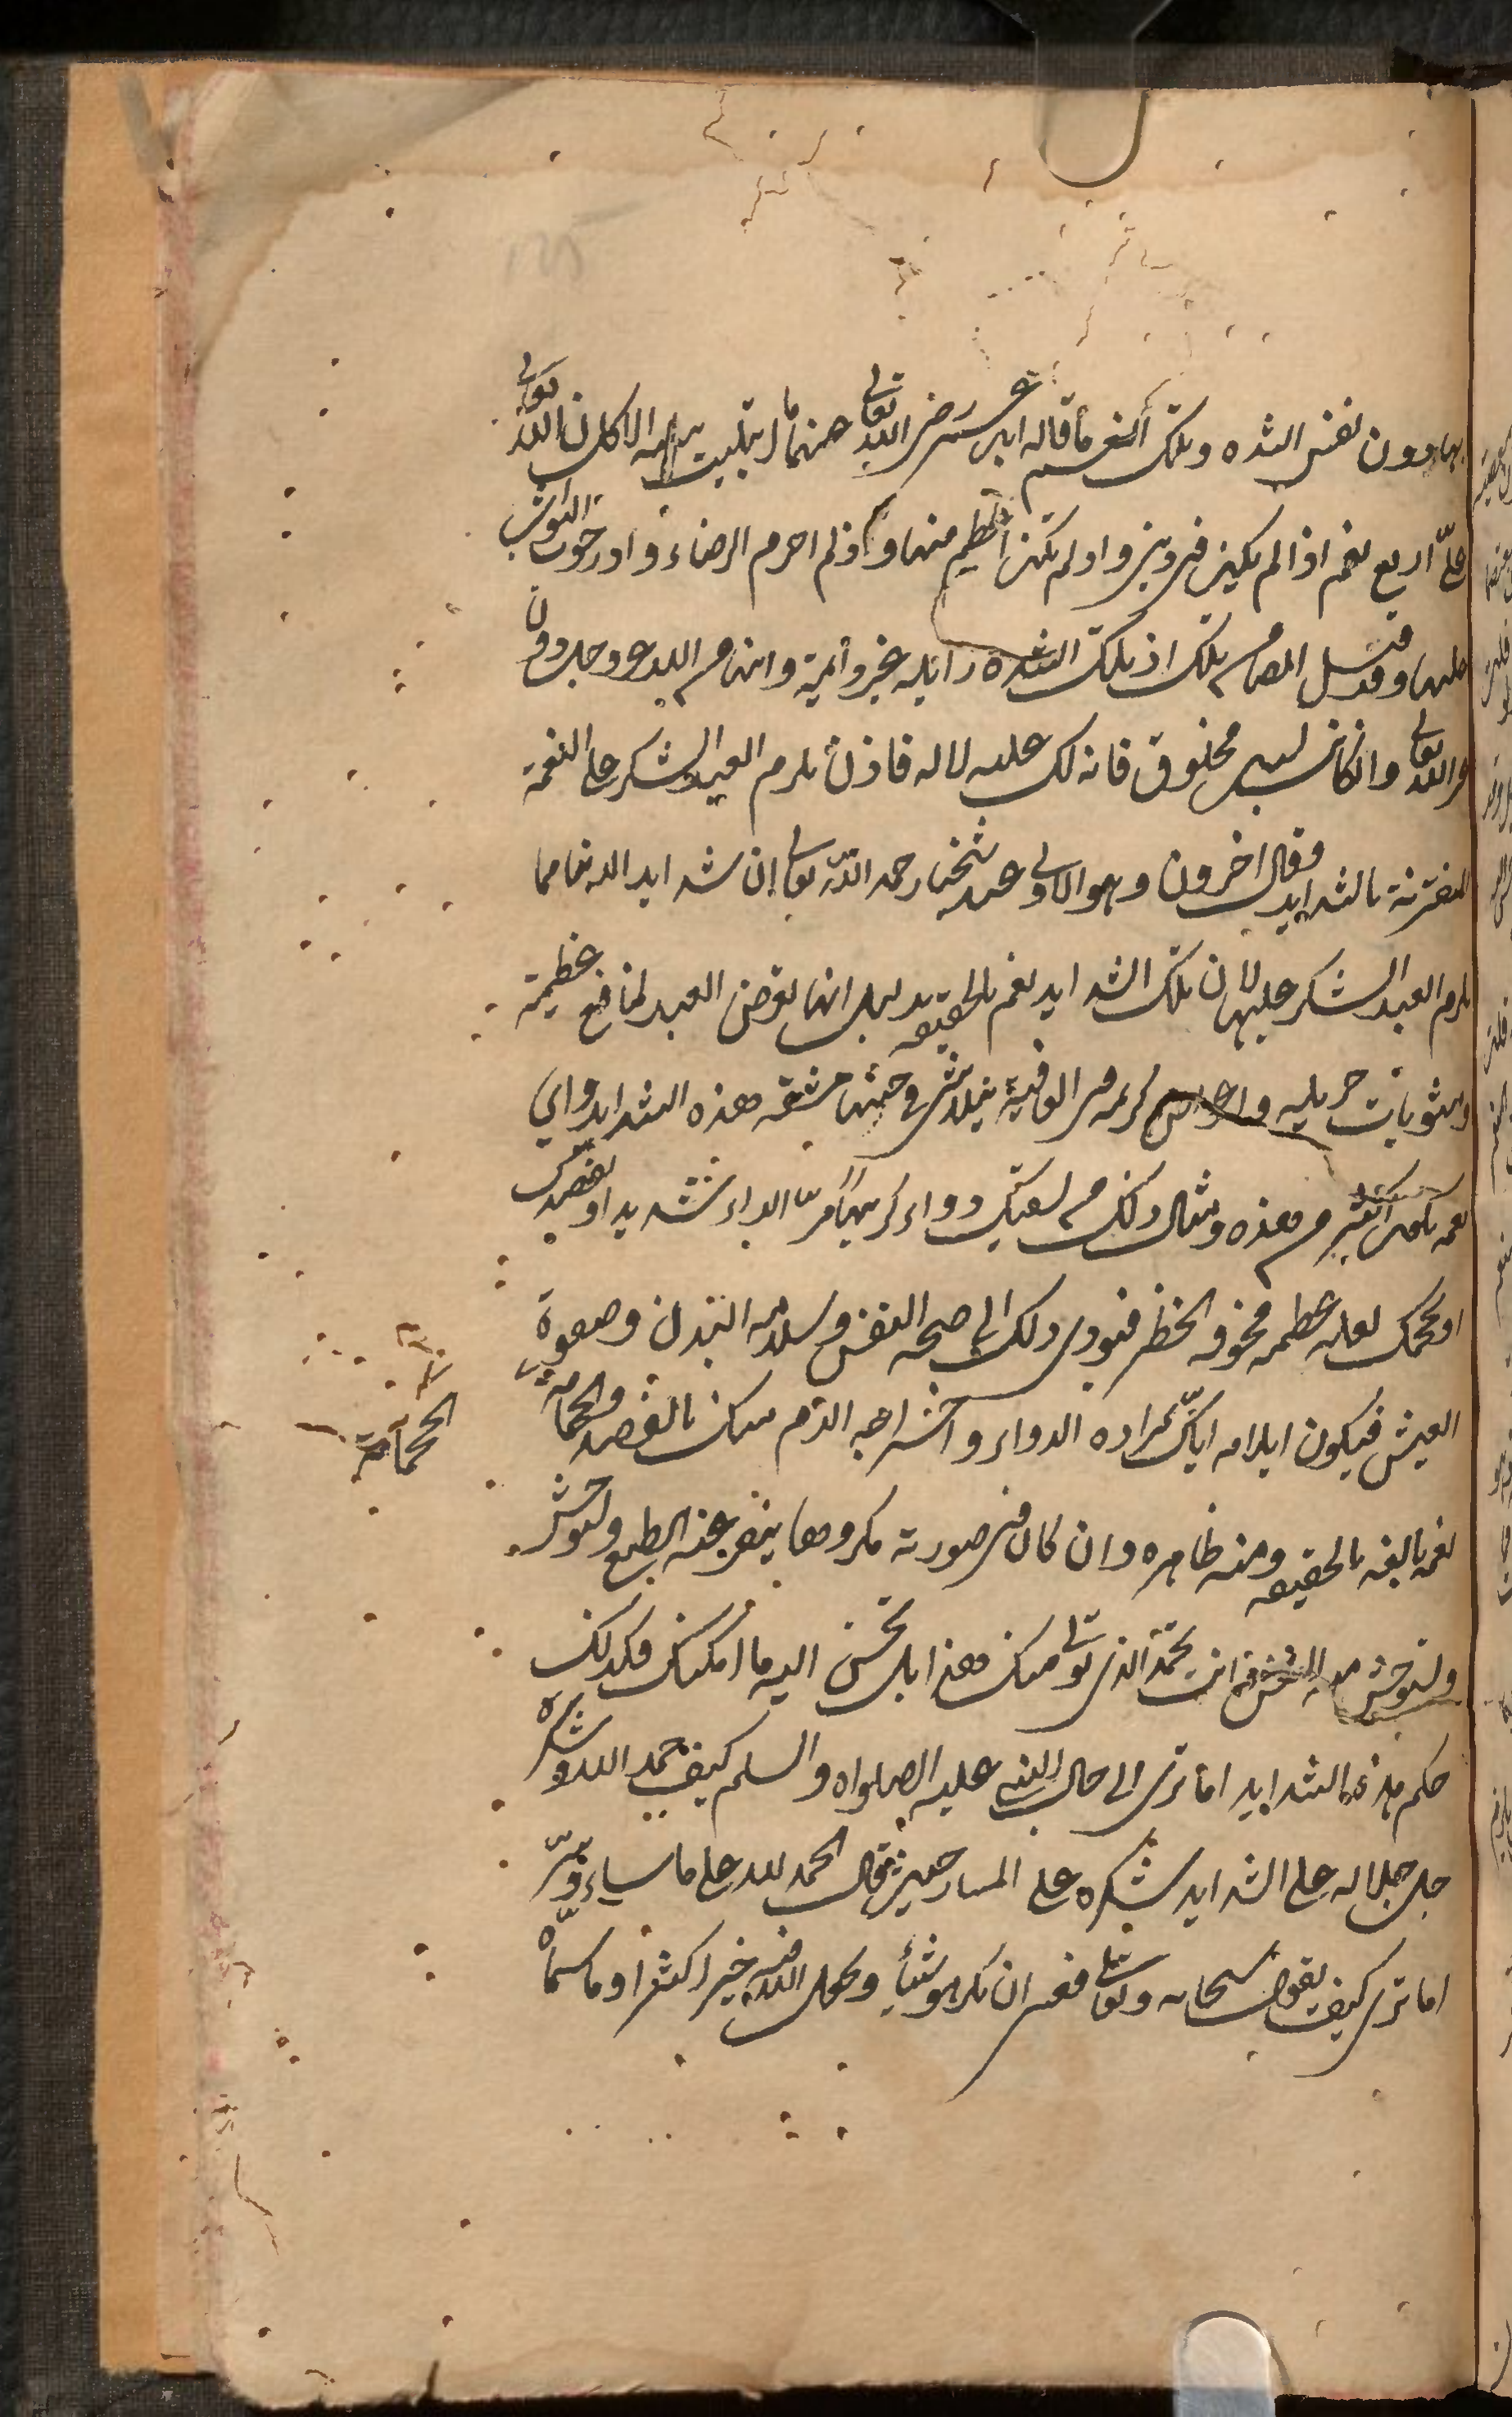 بها دون نفس الشده وتلك النعم ما قاله ابن عمر رضى الله تعالى عنهما ما ابتليت ببليه الا كان لله تعالى
على اربع نعم اذا لم يكن في دينى واذ لم تكن اعظم منها واذ لم احرم الرضاء واذ رجوت الثواب
عليها وقد قيل ايضا من تلك اذ تلك الشده زايله غير دائمة وانها من الله عز وجل دون
غير الله تعالى وان كانت لسبب مخلوق فانه لك عليه لا له فاذن يلزم العبد الشكر على النعمة
المقترنة بالشدايد وقال اخرون وهو الاولى عند شيخنا رحمه الله تعالى إن شدايد الدنيا مما
يلزم العبد الشكر عليها لان تلك الشدايد نعم بالحقيقه بدليل انها تعرض العبد لمنافع عظيمة
ومثوبات جزيله واعواض كريمه فى العاقبة يتلاشى فى جنبها مشقه هذه الشدايد واي
نعمه تكون اكبر من هذه ومثال ذلك من يسقيك دواء كريها مرّا لداء شديد او يفصدك
او يحجمك لعله عظيمه مخوفه الخطر فيودى ذلك الى صحه النفس وسلامه البدن وصفوة
العيش فيكون ايلامه اياك بمراره الدواء واخراجه الدم منك بالفصد والحجامه
الحجامة
نعمه بالغه بالحقيقه ومنه ظاهره وان كان في صورته مكروها ينفر عنه الطبع ولتوحش
ولتوحش منه النفس فانت تحمد الذى تولى منك هذا بل تحسن اليه ما امكنك فكذلك
حكم هذه الشدايد اما ترى الى حال النبى عليه الصلواه والسلم كيف حمد الله وشكره
جل جلاله على الشدايد شكره على المسار حيث قال الحمد لله على ما ساء وسرّ
اما ترى كيف يقول سبحانه وتعالى فعسى ان تكرهو شيئا ويجعل الله فيه خيرا كثيرا وما سماه